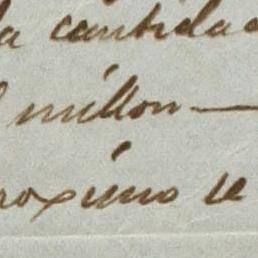 la cantidad
millon—
roximo se